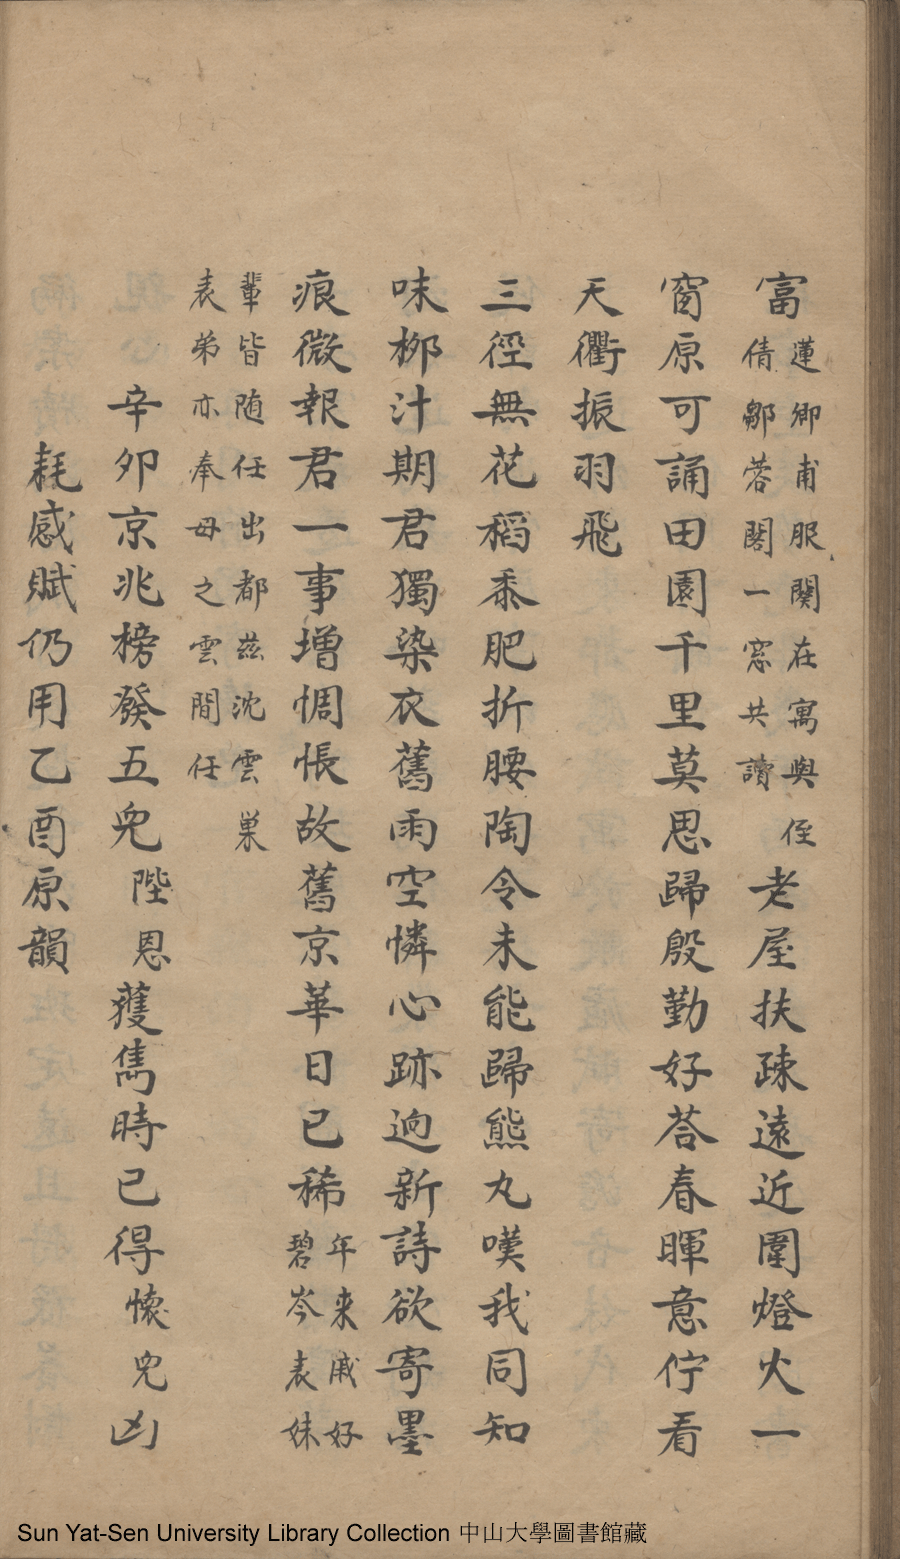 富蓮卿甫服闋在寓與侄倩鄒蓉閣一窓共讀老屋扶疎遠近圍燈火一
窗原可誦田園千里莫思歸殷勤好荅春暉意佇看
天衢振羽飛
三徑無花稻黍肥折腰陶令未能歸熊丸嘆我同知
味桞汁期君獨染衣舊雨空憐心跡逈新詩欲寄墨
痕微報君一事增惆悵故舊京華日已稀年来戚好碧岑表妹
輩皆随任出都茲沈雲巢表弟亦奉母之雲間任
辛夘京兆榜發五兒陛恩獲雋時已得懷兒凶
耗感賦仍用乙酉原韻
Sun Yat-Sen University Library Collection 中山大學圖書館藏